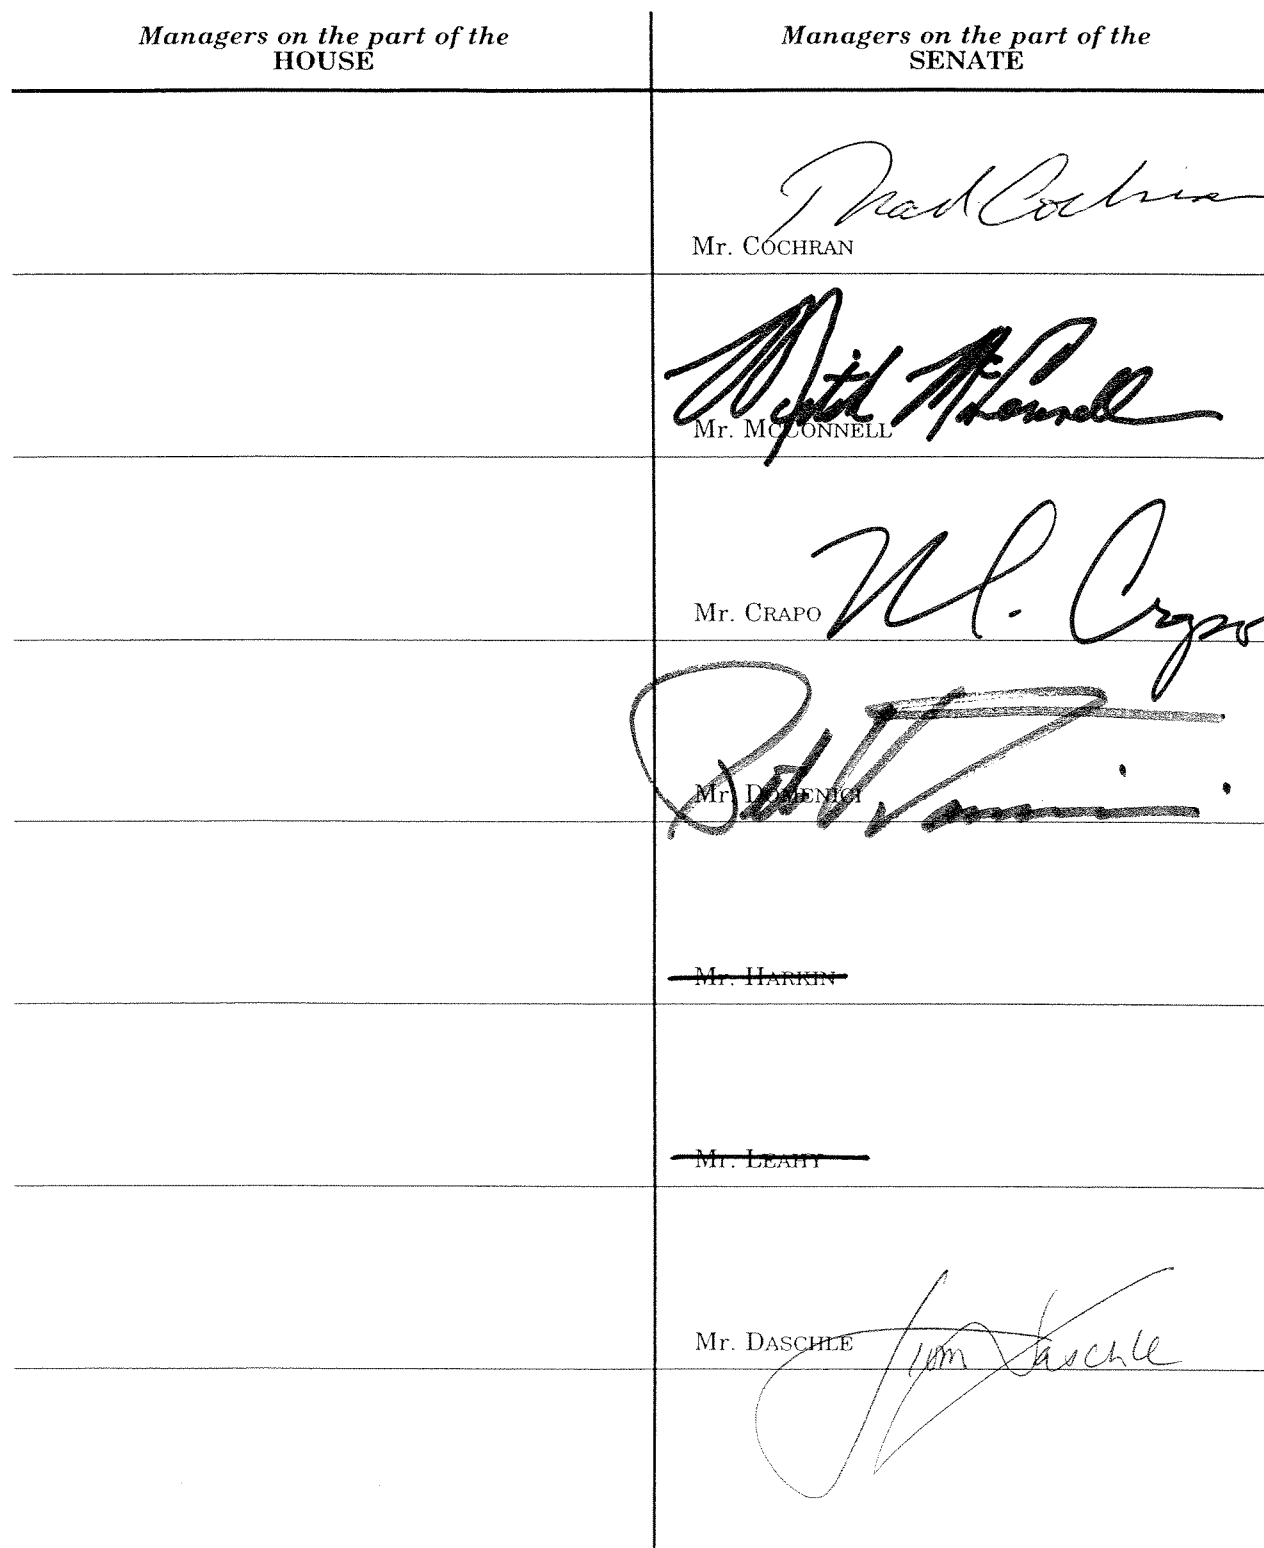 Managers on the part of the
HOUSE
Managers on the part of the
SENATE
Thad Cochran
Mr. COCHRAN
Mitch McConnell
Mr. MCCONNELL
M. Crapo
Mr. CRAPO
Pete V. Domenici
Mr. DOMENICI
Mr. HARKIN
Mr. LEAHY
Mr. DASCHLE
Tom Daschle